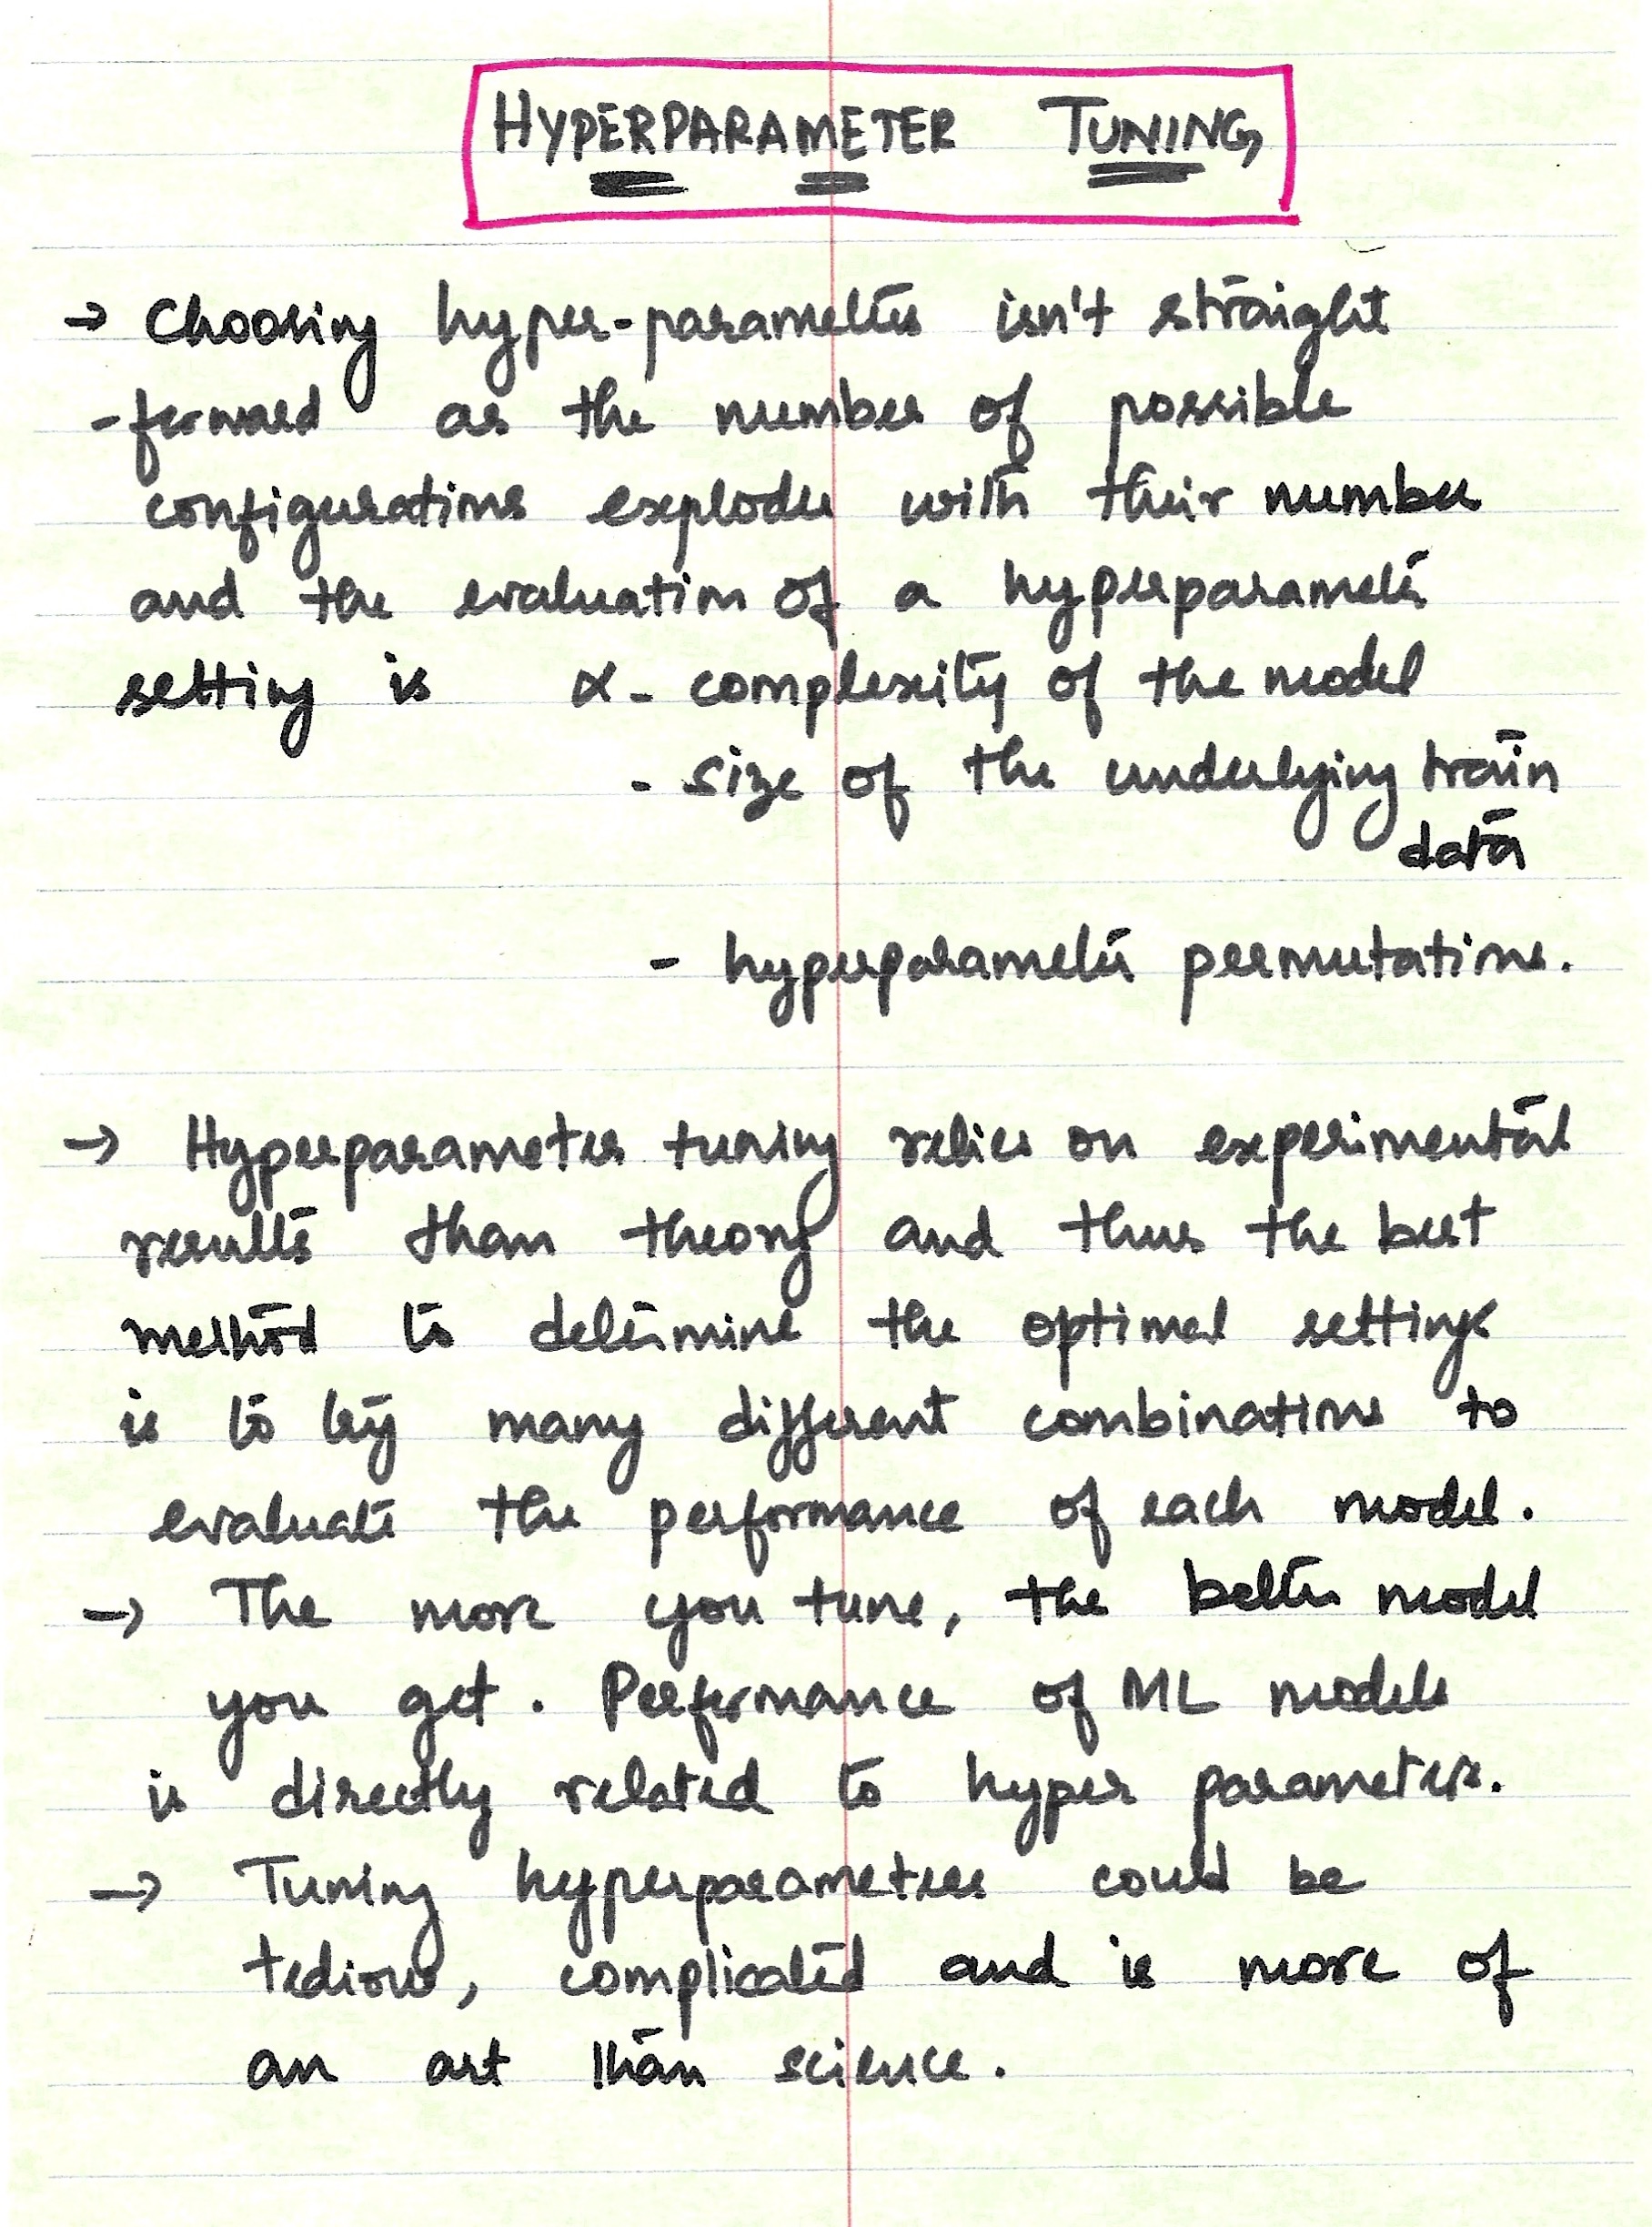 HYPERPARAMETER TUNING
→ Choosing hyper-parameters isn't straight
-forward as the number of possible
configurations explodes with their number
and the evaluation of a hyperparameter
setting is α - complexity of the model
- size of the underlying train
data
- hyperparameter permutations.
→ Hyperparameter tuning relies on experimental
results than theory and thus the best
method to determine the optimal settings
is to try many different combinations to
evaluate the performance of each model.
→ The more you tune, the better model
you get. Performance of ML models
is directly related to hyper parameters.
→ Tuning hyperparameters could be
tedious, complicated and is more of
an art than science.